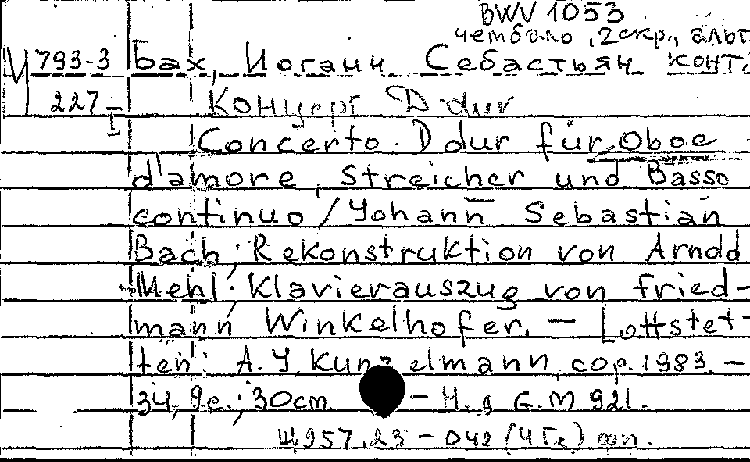 BWV 1053
чембало, 2 скр., альт
793-3 Бах, Иоганн Себастьян конт.
227-I Концерт D-dur
Concerto D dur für Oboe
d'amore, Streicher und Basso
continuo / Yohann Sebastian
Bach; Rekonstruktion von Arnold
Mehl; Klavierauszug von Fried-
mann Winkelhofer. — Lottstet-
ten: A. Y. Kunzelmann, cop. 1983. —
34, 9 c.; 30cm — Н. д. G.M 921.
Ш957.23 - 042 (4 Ге) яп.